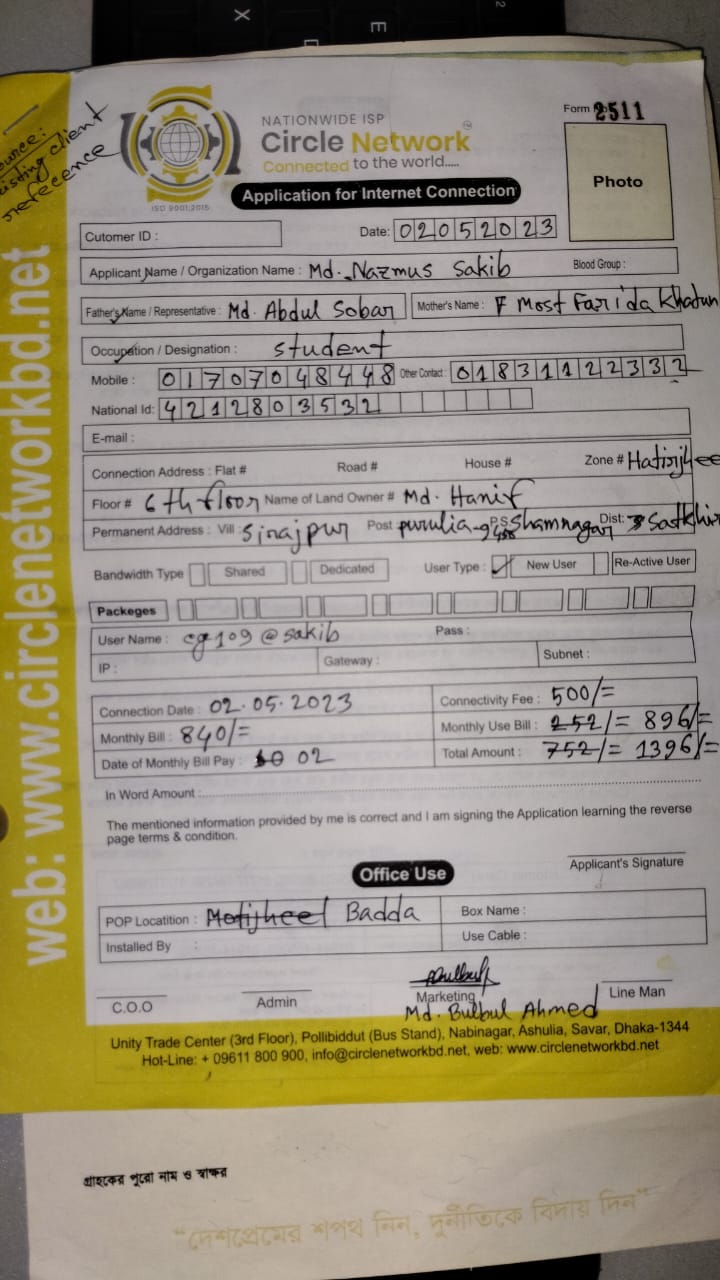 X E 2
source: existing client reference
NATIONWIDE ISP
Circle Network
Connected to the world.....
ISO 9001:2015
Form 2511
Photo
Application for Internet Connection
Cutomer ID :
Date: 02052023
Applicant Name / Organization Name : Md. Nazmus Sakib Blood Group :
Father's Name / Representative : Md. Abdul Sobar Mother's Name : Most Farida Khatun
Occupation / Designation : Student
Mobile : 01707048448 Other Contact : 01831122332
National Id: 4212803532
E-mail :
Connection Address : Flat # Road # House # Zone # Hatirjhee
Floor # 6th floor Name of Land Owner # Md. Hanif
Permanent Address : Vill Sirajpur Post purulia P.S Shamnagar Dist: Satkhir
Bandwidth Type Shared Dedicated User Type : New User Re-Active User
Packeges
User Name : cg109@sakib Pass :
IP : Gateway : Subnet :
Connection Date : 02.05.2023 Connectivity Fee : 500/=
Monthly Bill : 840/= Monthly Use Bill : 252/= 896/=
Date of Monthly Bill Pay : 02 Total Amount : 752/= 1396/=
In Word Amount :
The mentioned information provided by me is correct and I am signing the Application learning the reverse
page terms & condition.
Applicant's Signature
Office Use
POP Locatition : Motijheel Badda Box Name :
Installed By : Use Cable :
C.O.O Admin Marketing Line Man
Md. Bulbul Ahmed
Unity Trade Center (3rd Floor), Pollibiddut (Bus Stand), Nabinagar, Ashulia, Savar, Dhaka-1344
Hot-Line: + 09611 800 900, info@circlenetworkbd.net, web: www.circlenetworkbd.net
web: www.circlenetworkbd.net
গ্রাহকের পুরো নাম ও স্বাক্ষর
“দেশপ্রেমের শপথ নিন, দুর্নীতিকে বিদায় দিন”